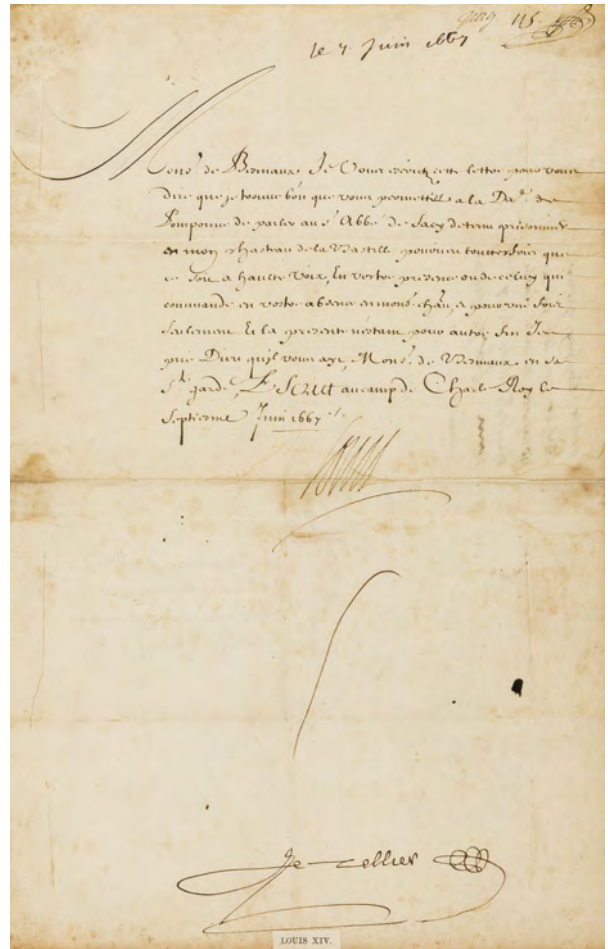 115
le 7 Juin 1667
Mons.r de Besmaux, Je Vous escris cette lettre pour vous
dire que je trouve bon que vous permettiez a la Da.e de
Pomponne de parler au s.r Abbé de Sacy detenu prisonnier
en mon chasteau de la Bastille pourveu touttesfois que
ce soit a haulte voix, En vostre presence ou de celuy qui
commande en vostre absence en mond. chau, et pour une fois
seulement Et la presente n'estant pour autre fin Je
prie Dieu qu'il vous ayt, Mons.r de Besmaux en sa
s.te garde, Escrit au camp de Charle Roy le
septiesme Juin 1667
Louis
Le Tellier
LOUIS XIV.